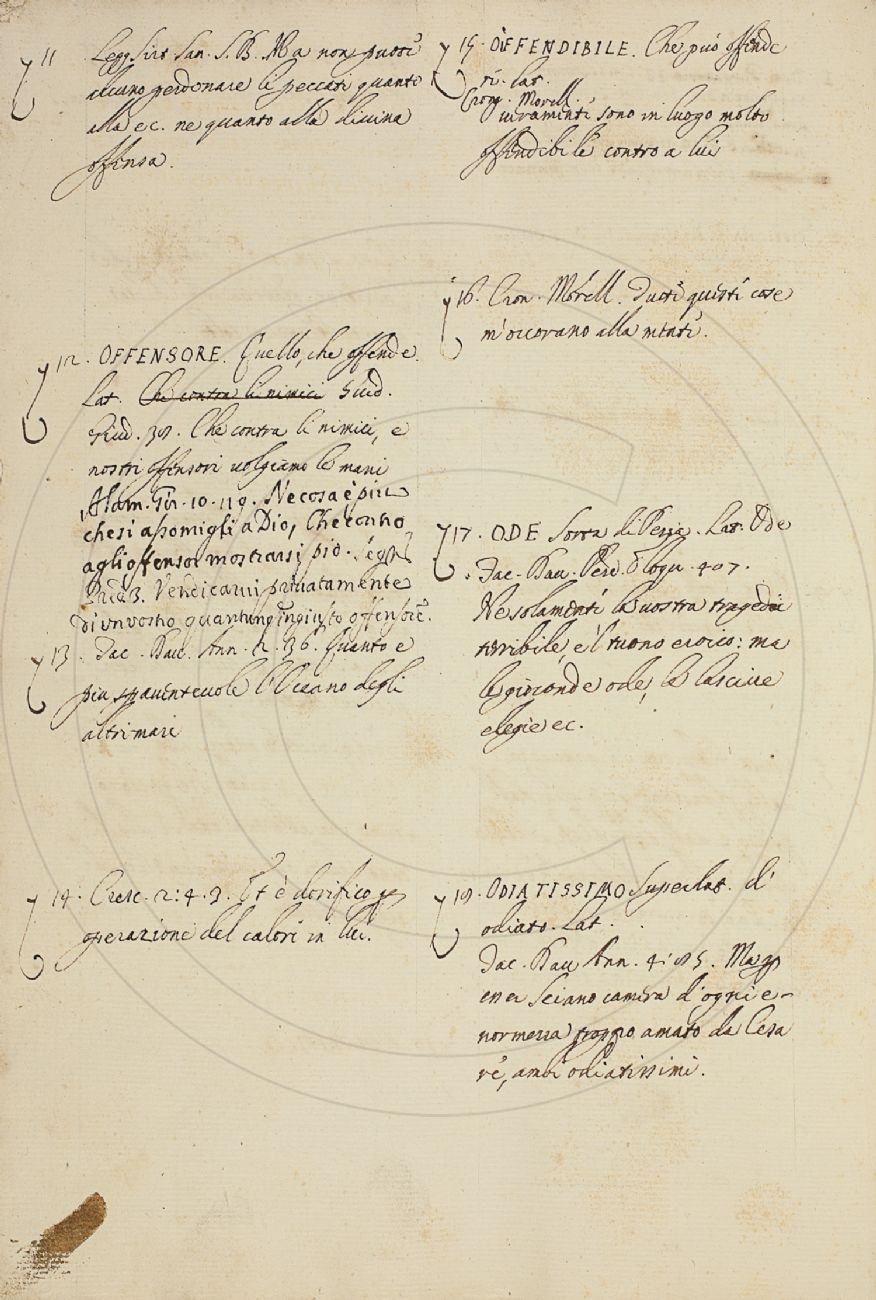 11. Legg. Sirt. San. S. B. Ma non puote
alcuno perdonare li peccati quanto
alla ec. ne quanto alla divina
offensa.
12. OFFENSORE. Quello, che offende.
Lat. Che contra li nimici Giud.
Giud. 38. Che contra li nimici, e
nostri offensori volgiamo le mani
Alam. Gir. 10. 119. Ne cosa è piu
che si assomigli a Dio, Che contro
agli offensor mostrarsi pio.
Pred 3. Vendicarvi privatamente
di un vostro quantunq ingiusto offensore.
13. Tac. Dav. Ann. 2. 36. Quanto e
piu spaventevole l'Oceano degli
altri mari
14. Cresc. 2: 4. 9. Et è dorifico
operazione del calore in lui.
15. OFFENDIBILE. Che può offende
re. Lat.
Cron. Morell.
veramente sono in luogo molto
offendibile contro a lui
16. Cron. Morell. Tutte queste cose
m'occorano alla mente.
17. ODE Sorta di Poesia. Lat. Ode
Tac. Dav. Perd. Eloqu. 407.
Ne solamente la vostra tragedia
terribile, e 'l tuono eroico: ma
le gioconde ode, le lascive
elegie ec.
18. ODIATISSIMO Superlat. di
odiato. Lat.
Tac. Dav Ann. 4: 85. Ma
era Seiano camera d'ogni e-
normezza troppo amato da Cesa
re, ambi odiatissimi.